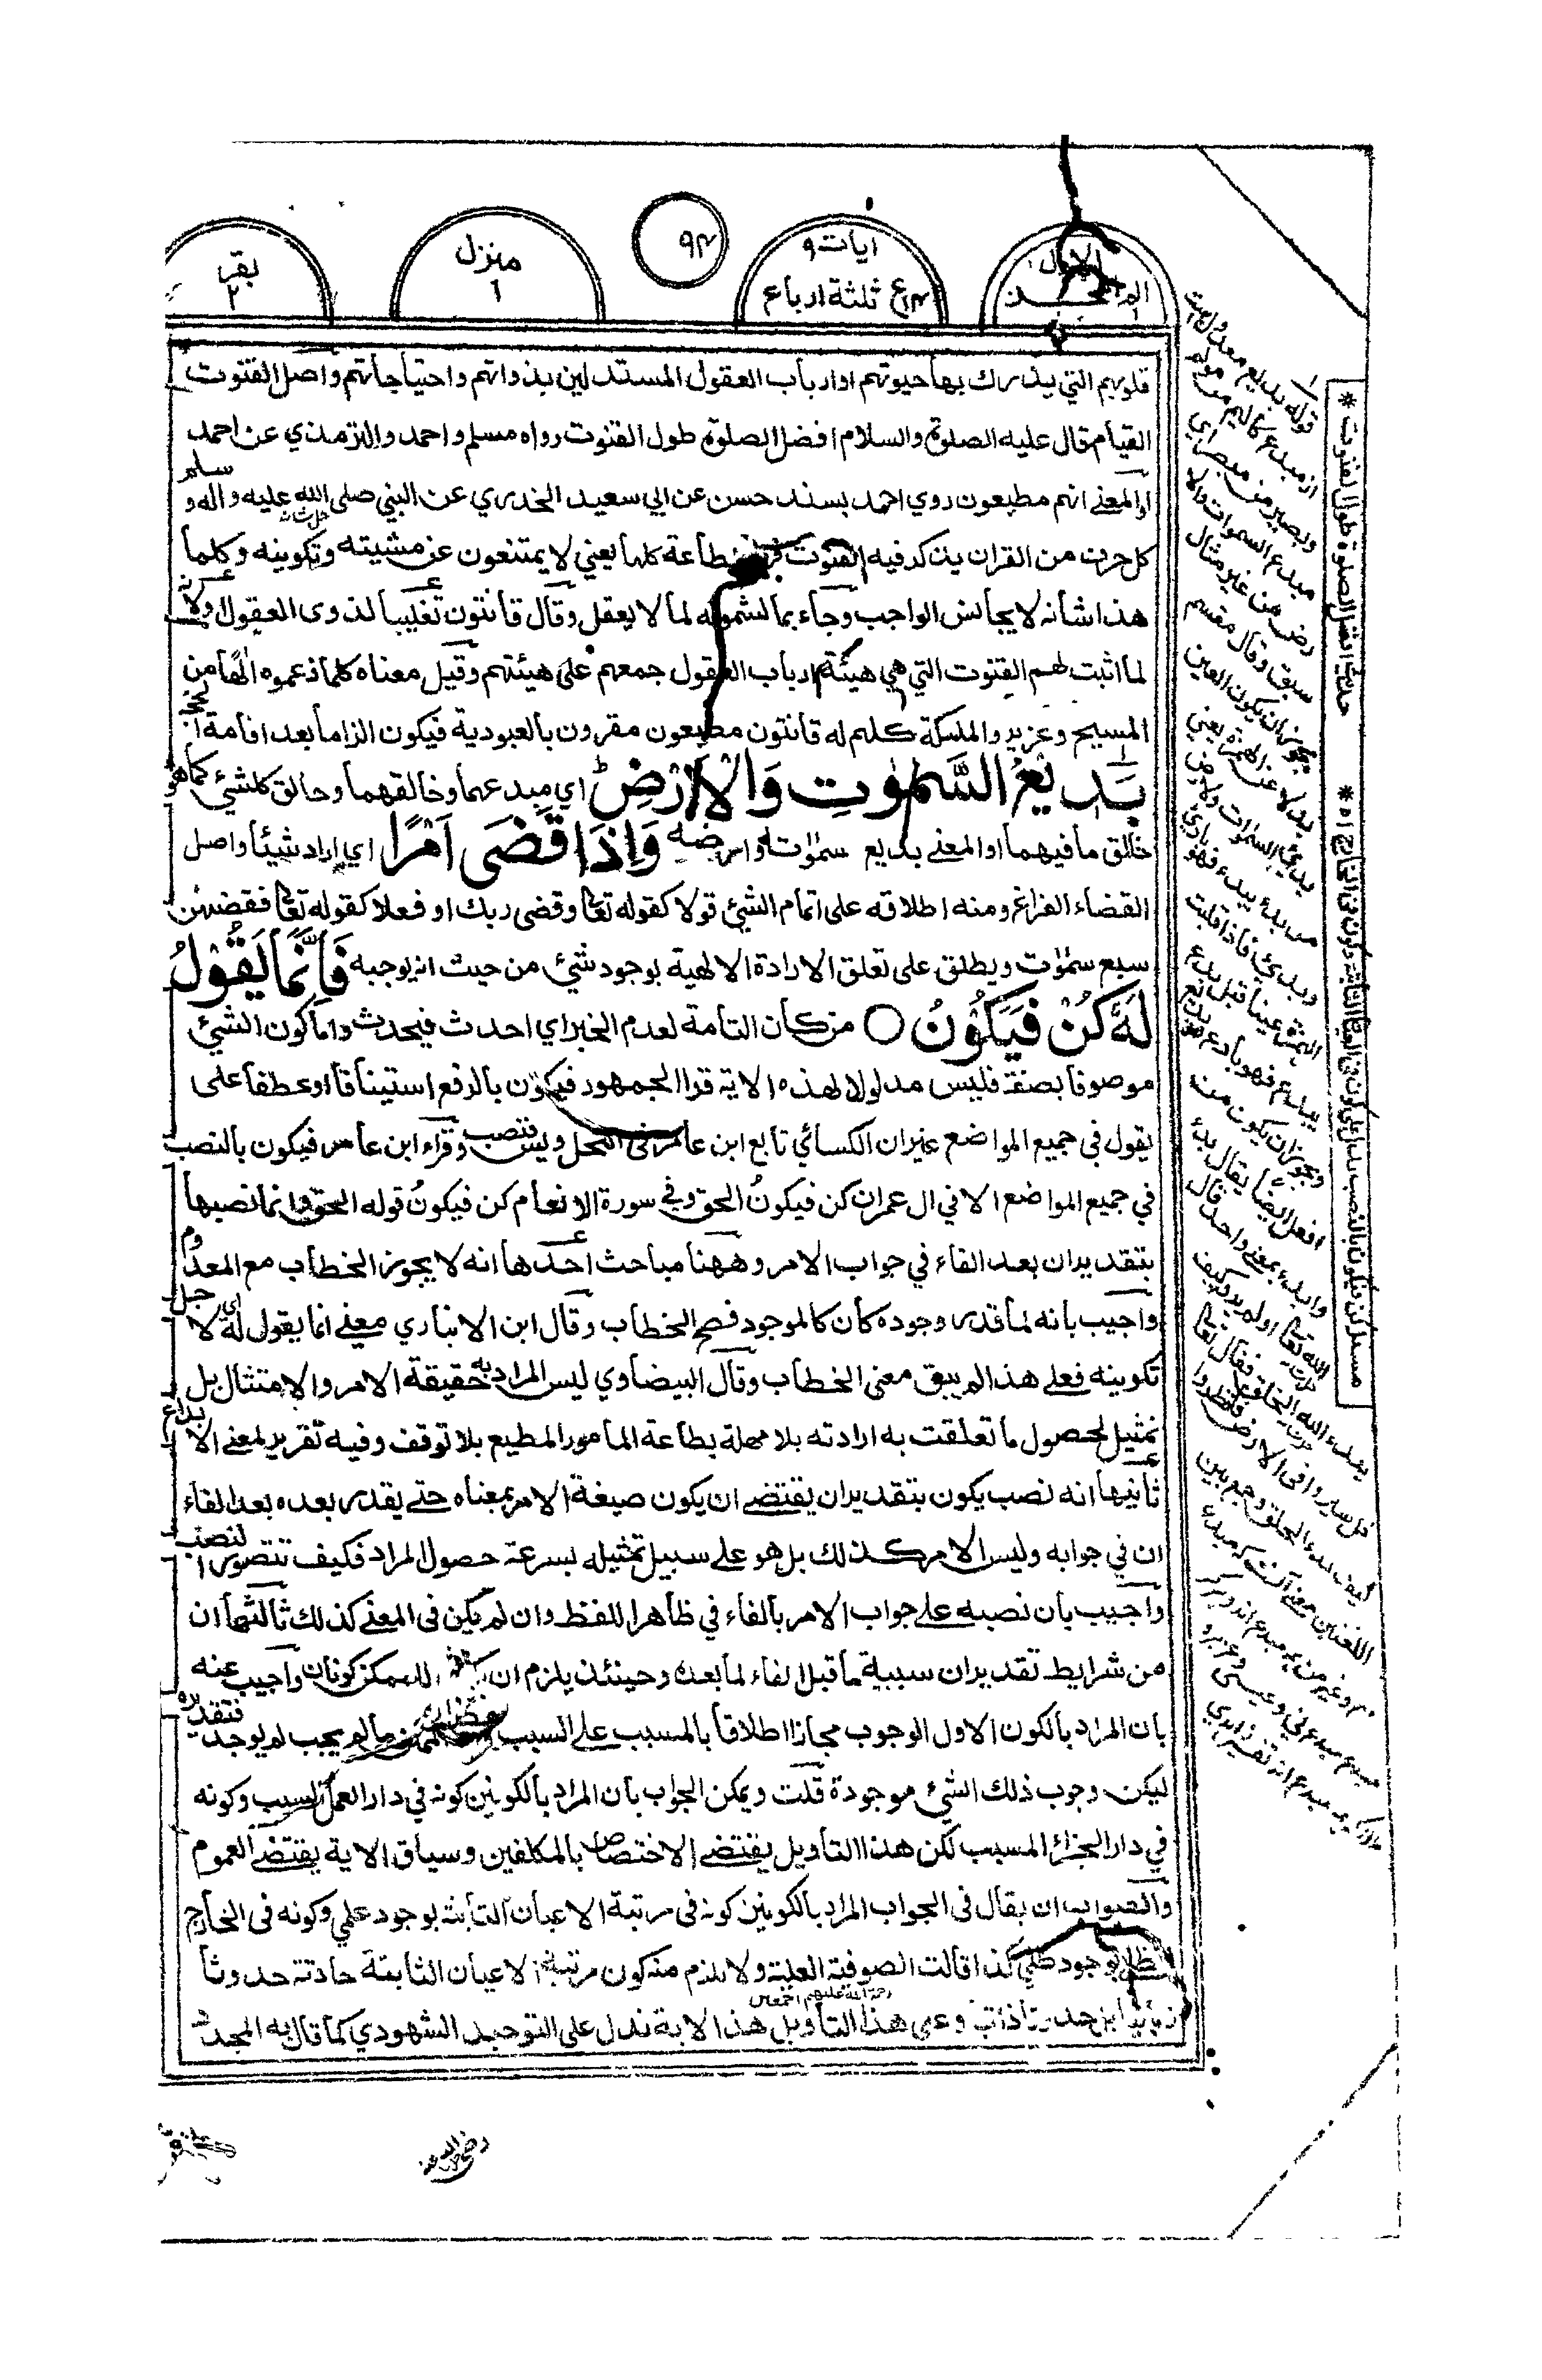 الم ١
ايات ٩
ع١٤ ثلثة ارباع
٩٤
منزل
١
بقر
٢
قلوبهم التي يدرك بها حيوتهم او ارباب العقول المستدلين بذواتهم واحتياجاتهم واصل القنوت
القيام قال عليه الصلوة والسلام افضل الصلوة طول القنوت رواه مسلم واحمد والترمذي عن احمد
او المعنى انهم مطيعون روي احمد بسند حسن عن ابي سعيد الخدري عن النبي صلى الله عليه واله وسلم
كل حرف من القران يذكر فيه القنوت فهو طاعة كلها يعني لا يمتنعون عن مشيته وتكوينه وكلما
هذا شأنه لا يجانس الواجب وجاء بما لشموله لما لا يعقل وقال قانتون تغليبا لذوى العقول ولانه
لما اثبت لهم القنوت التي هي هيئة ارباب العقول جمعهم على هيئتهم وقيل معناه كلما زعموه الٰها من
المسيح وعزير والملئكة كلهم له قانتون مطيعون مقرون بالعبودية فيكون الزاما بعد اقامة الحجة
بَدِيْعُ السَّمٰوٰتِ وَالْاَرْضِ ؕ اي مبدعهما وخالقهما وخالق كلشئ كما هو
خالق ما فيهما او المعنى بديع سمٰوٰته وارضه وَاِذَا قَضٰٓى اَمْرًا اي اراد شيئا واصل
القضاء الفراغ ومنه اطلاقه على اتمام الشئ قولا كقوله تعالى وقضى ربك او فعلا كقوله تعالى فقضٰهن
سبع سمٰوٰت ويطلق على تعلق الارادة الالهية بوجود شئ من حيث انه يوجبه فَاِنَّمَا يَقُوْلُ
لَهٗ كُنْ فَيَكُوْنُ ○ من كان التامة لعدم الخبر اي احدث فيحدث واما كون الشئ
موصوفا بصفة فليس مدلولا لهذه الاية قرا الجمهور فيكون بالرفع استينافا او عطفا على
يقول في جميع المواضع غير ان الكسائي تابع ابن عامر فى النحل ويس فنصب وقراء ابن عامر فيكون بالنصب
في جميع المواضع الا في ال عمران كن فيكونُ الحق وفي سورة الانعام كن فيكونُ قوله الحق وانما نصبها
بتقدير ان بعد الفاء في جواب الامر وههنا مباحث احدها انه لا يجوز الخطاب مع المعدوم
واجيب بانه لما قدر وجوده كان كالموجود فصح الخطاب وقال ابن الانباري معنى انما يقول له اي لاجل
تكوينه فعلى هذا لم يبق معنى الخطاب وقال البيضاوي ليس المراد به حقيقة الامر والامتثال بل
تمثيل لحصول ما تعلقت به ارادته بلا مهلة بطاعة المأمور المطيع بلا توقف وفيه تقرير لمعنى الابداع
ثانيها انه نصب يكون بتقدير ان يقتضى ان يكون صيغة الامر بمعناه حتى يقدر بعده بعد الفاء
ان في جوابه وليس الامر كذلك بل هو على سبيل تمثيله بسرعة حصول المراد فكيف تتصور النصب
واجيب بان نصبه على جواب الامر بالفاء في ظاهر اللفظ وان لم يكن فى المعنى كذلك ثالثها ان
من شرايط تقدير ان سببية ما قبل الفاء لما بعده وحينئذ يلزم ان للممكن كونان واجيب عنه
بان المراد بالكون الاول الوجوب مجازا اطلاقا بالمسبب على السبب ما لم يجب لم يوجد فتقديره
ليكن وجوب ذلك الشئ موجودة قلت ويمكن الجواب بان المراد بالكونين كونه في دار العمل السبب وكونه
في دار الجزاء المسبب لكن هذا التاويل يقتضى الاختصاص بالمكلفين وسياق الاية يقتضى العموم
والصواب ان يقال فى الجواب المراد بالكونين كونه فى مرتبة الاعيان الثابتة بوجود علمي وكونه فى الخارج
الظل بوجود ظلي كذا قالت الصوفية العلية ولا يلزم منه كون مرتبة الاعيان الثابتة حادثة حدوثا
رحمة الله عليهم اجمعين
زمانيا بل حدوثا ذاتيا وعلى هذا التاويل هذا الاية تدل على التوحيد الشهودي كما قال به المجدد
رضي الله عنه
حديث افضل الصلوة طول القنوت *
مسئلة كن فيكون بالنصب يدل على كون فى العيان الثابتة وكون فى الخارج اه *
قوله بديع معدول
از مبدع كاليم من مولم
وبصير من مبصر اي
مبدع السموات والا
رض من غير مثال
سبق وقال مقسم
يجوز ان يكون العين
بدلا عن الهمزة يعني
بدئ السموات والارض
من بدء يبدء فهو بادي
وبدئ فاذا قلبت
الهمزة عينا قيل بدع
يبدع فهو بادع وبديع
ويجوز ان يكون من
افعل ايضا يقال بدء
وابدء بمعنى واحد قال
الله تعالى اولم يروا كيف
يبدء الله الخلق وقال تعالى
قل سيروا فى الارض فانظروا
كيف بدء الخلق وجمع بين